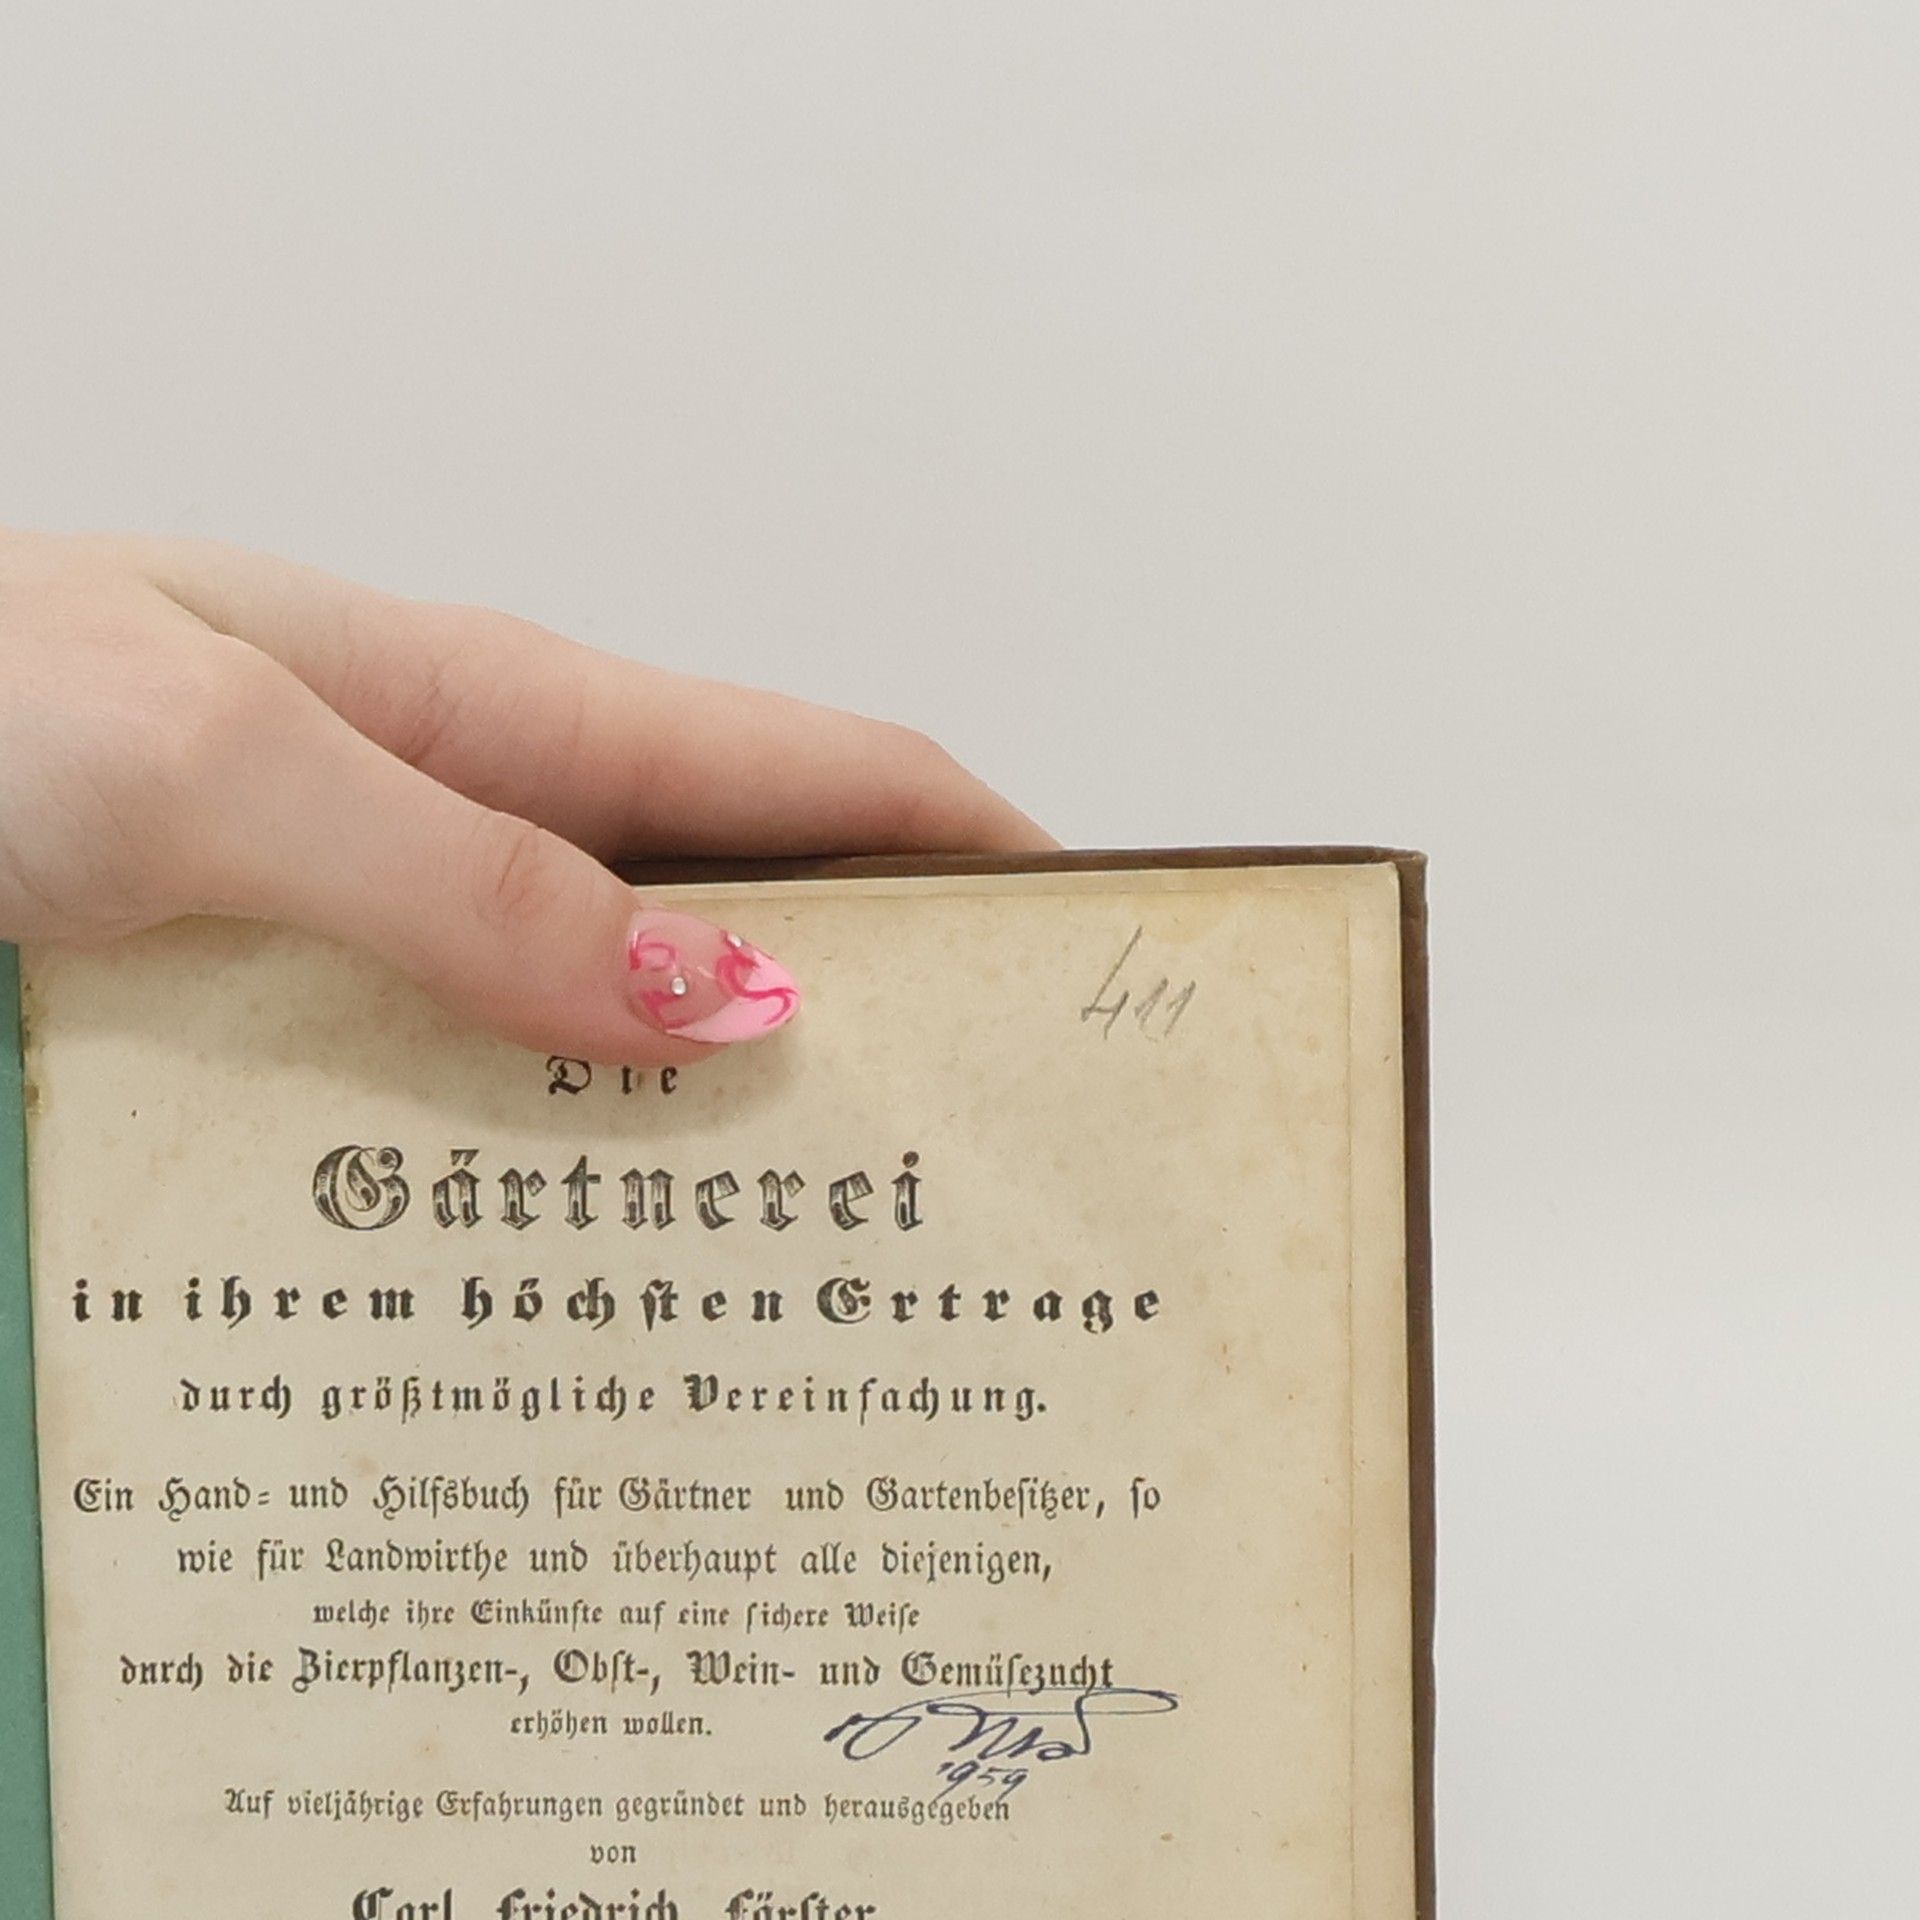 411
Die
Gärtnerei
in ihrem höchſten Ertrage
durch größtmögliche Vereinfachung.
Ein Hand= und Hilfsbuch für Gärtner und Gartenbeſitzer, ſo
wie für Landwirthe und überhaupt alle diejenigen,
welche ihre Einkünfte auf eine ſichere Weiſe
durch die Zierpflanzen-, Obſt-, Wein- und Gemüſezucht
erhöhen wollen.
1959
Auf vieljährige Erfahrungen gegründet und herausgegeben
von
Carl Friedrich Förſter